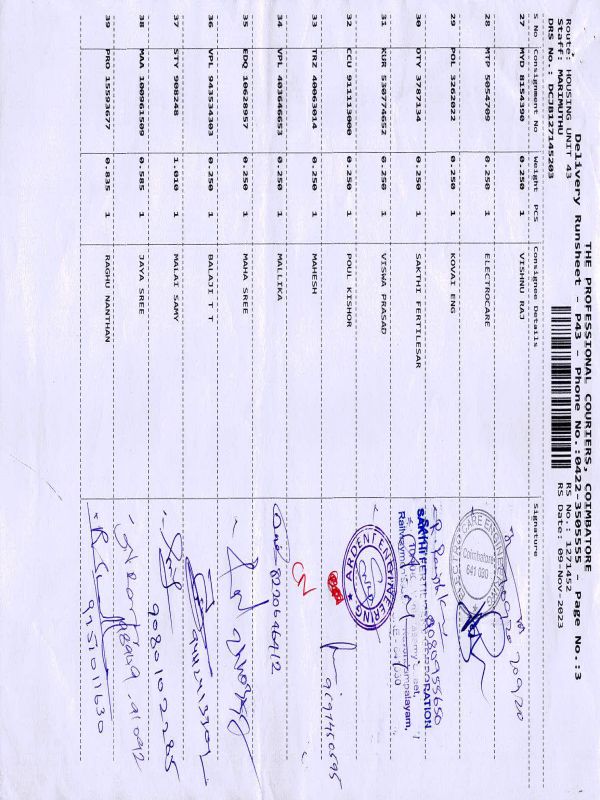 THE PROFESSIONAL COURIERS, COIMBATORE
Delivery Runsheet - P43 - Phone No.:0422-3505555 - Page No.:3
Route: HOUSING UNIT 43 RS No.: 1271452
Staff: MARIMUTHU RS Date: 09-Nov-2023
DRS No.: DCJB127145203
S No Consignment No Weight PCS Consignee Details Signature
27 MYD 8154390 0.250 1 VISHNU RAJ
28 MTP 5054709 0.250 1 ELECTROCARE
Coimbatore 641 030
29 POL 3262022 0.250 1 KOVAI ENG
30 DTY 3787134 0.250 1 SAKTHI FERTILESAR
31 KUR 530774652 0.250 1 VISWA PRASAD
ARDENT ENGINEERING
32 CCU 911113000 0.250 1 POUL KISHOR
33 TRZ 40063014 0.250 1 MAHESH
34 VPL 403646653 0.250 1 MALLIKA
35 EDQ 10628957 0.250 1 MAHA SREE
36 VPL 941534303 0.250 1 BALAJI T T
37 STY 908248 1.010 1 MALAI SAMY
9080102285
38 MAA 100961509 0.585 1 JAYA SREE
39 PRO 15593677 0.835 1 RAGHU NANTHAN
9751011630